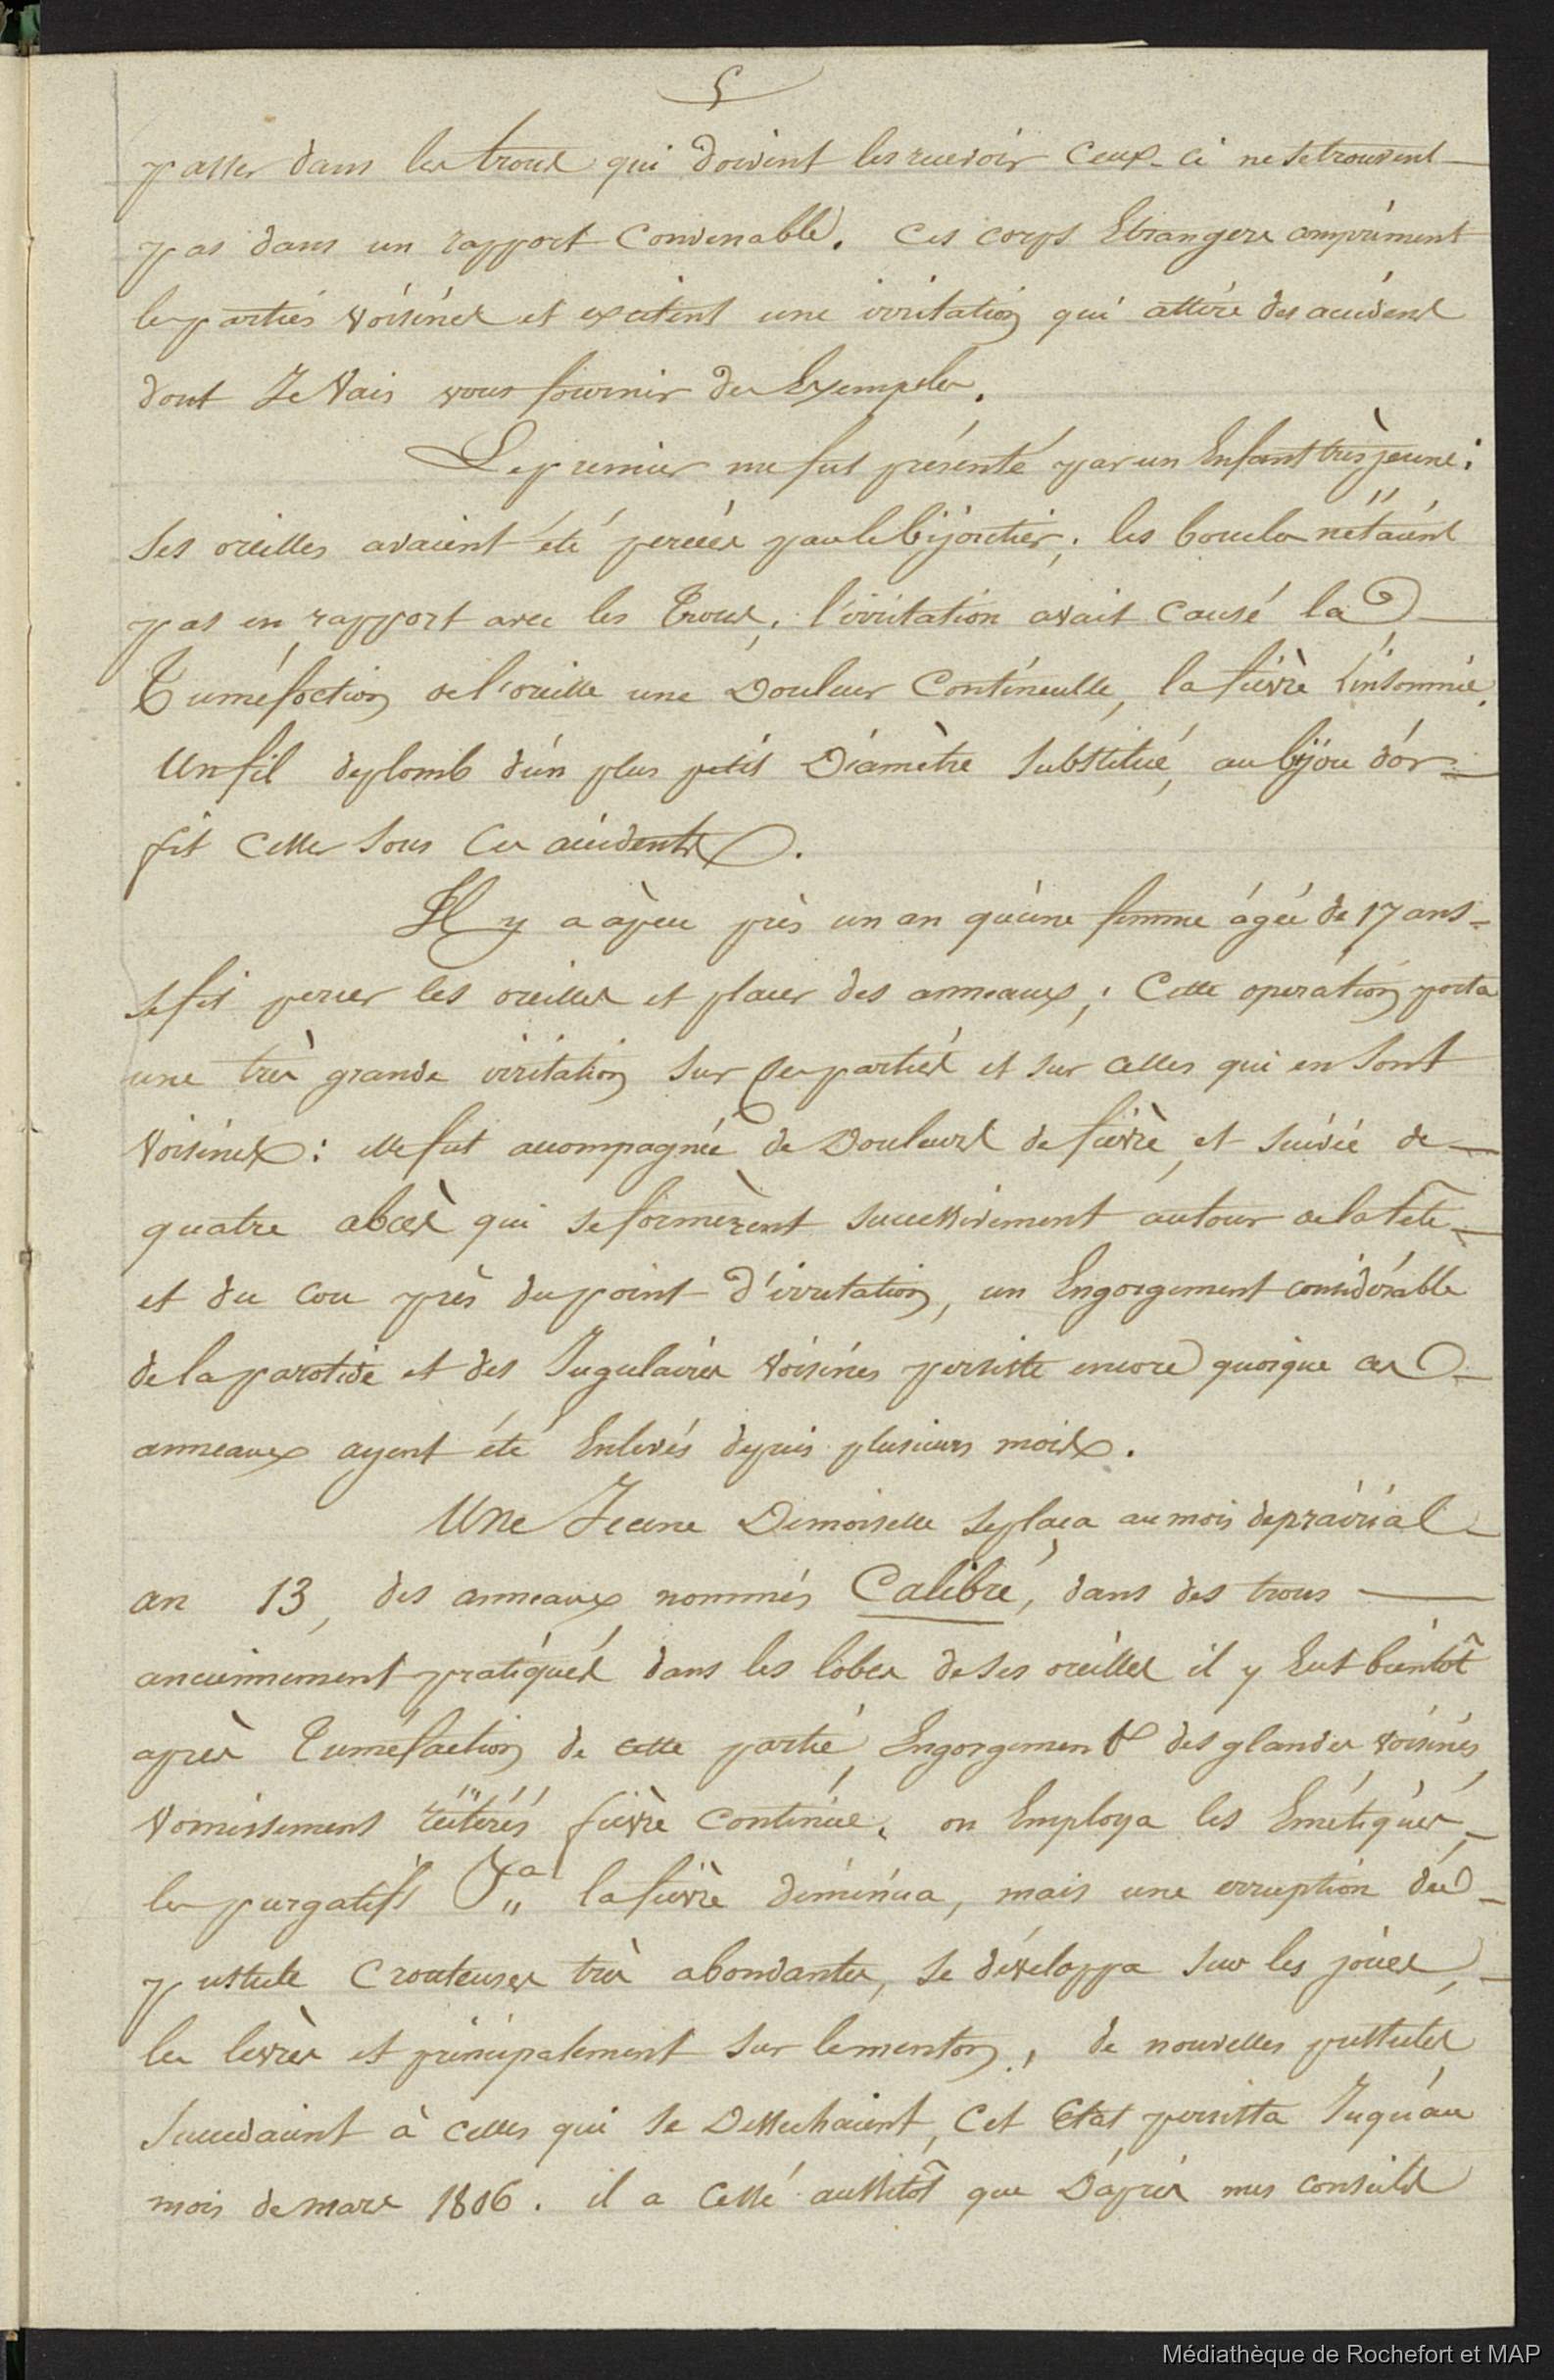 5
passer dans les troux qui doivent les recevoir ceux-ci ne se trouvent
pas dans un rapport convenable. Ces corps Etrangers compriment
les parties voisines et excitent une irritation qui attire des accidens
dont Je Vais vous fournir des Exemples.
Le premier me fut présenté par un Enfant très jeune;
ses oreilles avaient été percées par le bijoutier; les boucles n'étaient
pas en rapport avec les Troux, l'irritation avait causé la
Tuméfaction de l'oreille une Douleur Continuelle, la fièvre l'insomnie.
Un fil de plomb d'un plus petit Diamètre substitué, au bijou d'or
fit cesser tous ces accidents.
Il y a à peu près un an qu'une femme âgée de 17 ans
se fit percer les oreilles et placer des anneaux; Cette opération porta
une très grande irritation sur ces parties et sur celles qui en sont
voisines: elle fut accompagnée de Douleurs de fièvre, et suivie de
quatre abcès qui se formèrent successivement autour de la tête
et du cou près du point d'irritation, un Engorgement considérable
de la parotide et des Jugulaires voisines persiste encore quoique ces
anneaux ayent été Enlevés depuis plusieurs mois.
Une Jeune Demoiselle se plaça au mois de prairial
an 13, des anneaux nommés Calibré, dans des trous
anciennement pratiqués dans les lobes de ses oreilles il y Eut bientôt
après Tuméfaction de cette partie, Engorgement des glandes voisines,
vomissemens réitérés fièvre continue, on Employa les Emétiques,
les purgatifs &a la fièvre diminua, mais une erruption de
pustule Crouteuses très abondantes, se développa sur les joues,
les levres et principalement sur le menton, de nouvelles pustules
succedaient à celles qui se Dessechaient, Cet Etat persista Juqu'au
mois de mars 1806. il a Cessé aussitôt que D'après mes conseils
Médiathèque de Rochefort et MAP